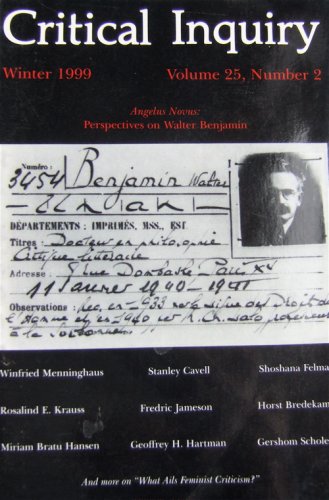 Critical Inquiry
Winter 1999 Volume 25, Number 2
Angelus Novus:
Perspectives on Walter Benjamin
Numéro:
3454 Benjamin Walter
DÉPARTEMENTS: IMPRIMÉS, MSS., EST
Titres: Docteur en philosophie
Critique littéraire
Adresse: rue Dombasle Paris XV
11 janvier 1940-1941
Observations:
Winfried Menninghaus Stanley Cavell Shoshana Felma
Rosalind E. Krauss Fredric Jameson Horst Bredekam
Miriam Bratu Hansen Geoffrey H. Hartman Gershom Schole
And more on "What Ails Feminist Criticism?"